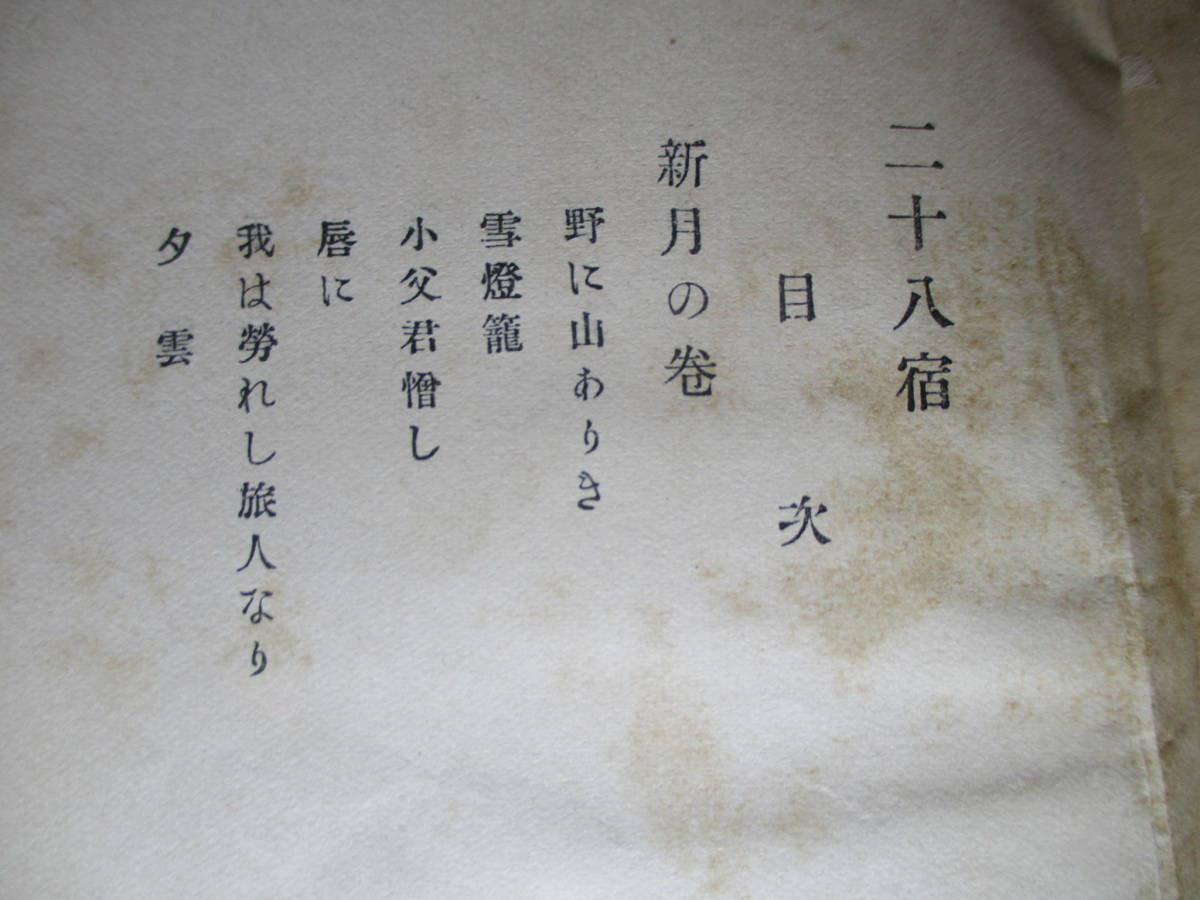 二十八宿
目次
新月の卷
野に山ありき
雪燈籠
小父君憎し
唇に
我は勞れし旅人なり
夕雲